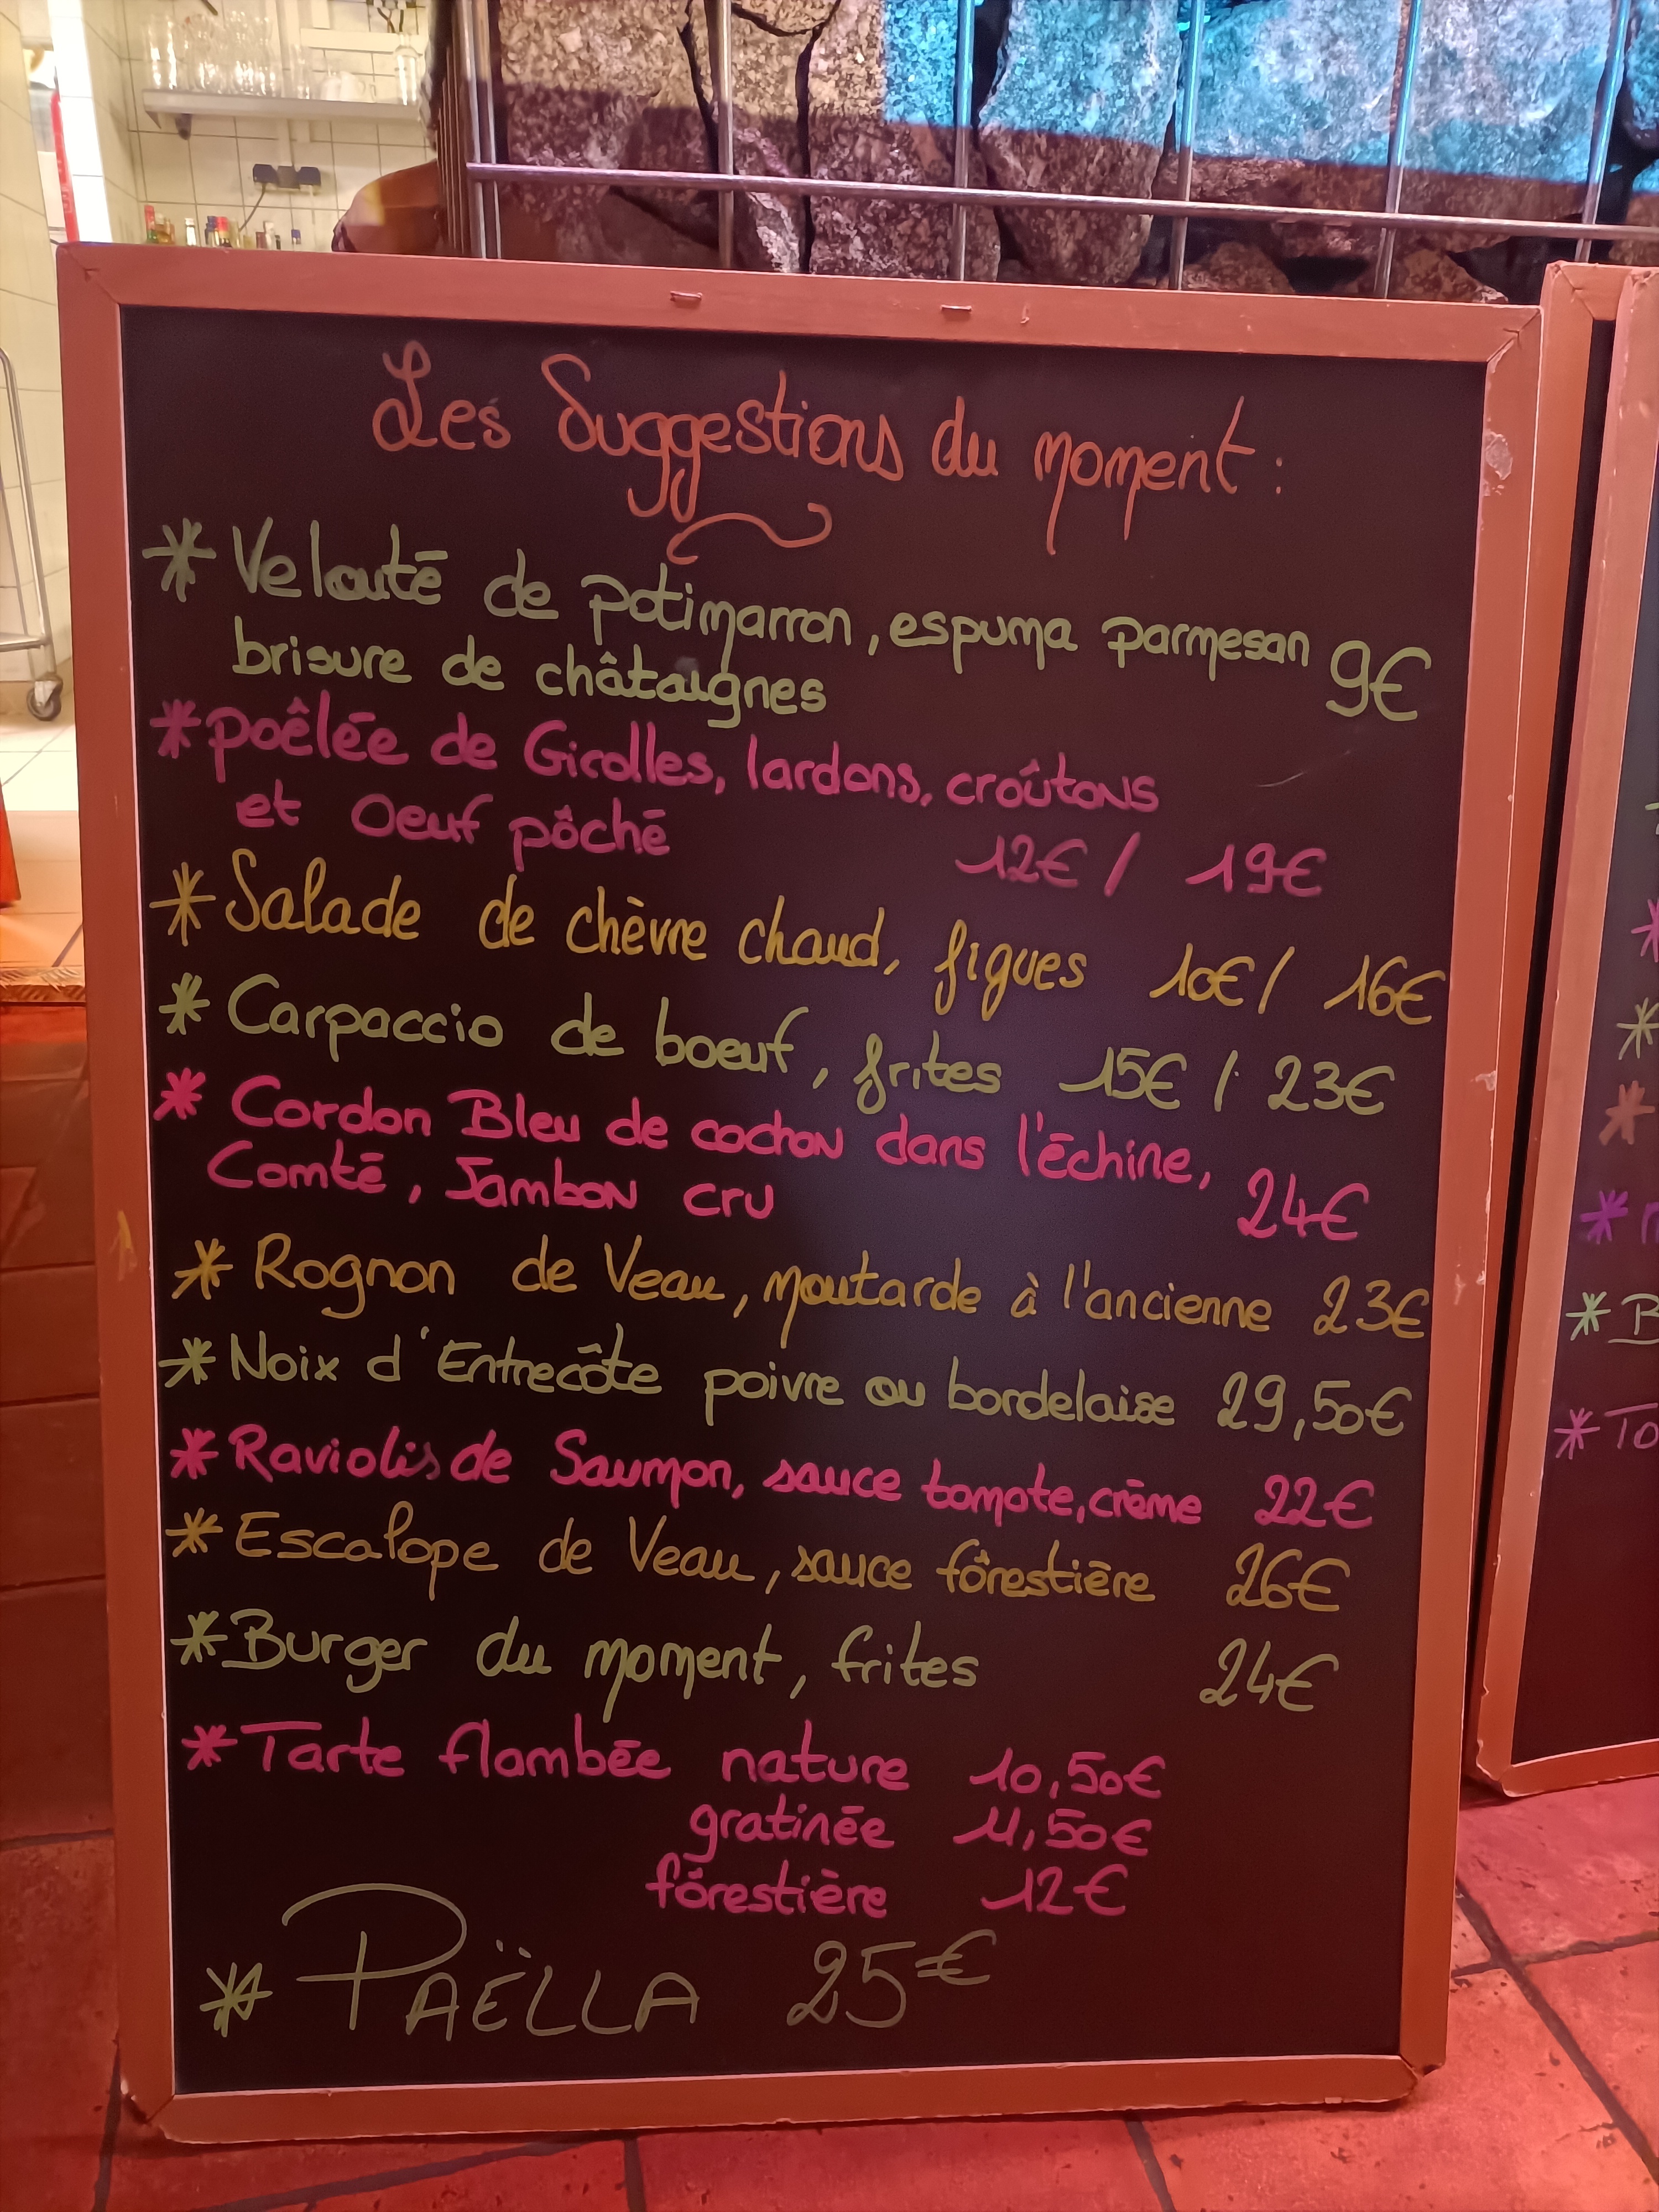 Les Suggestions du moment :
* Velouté de potimarron, espuma parmesan 9€
brisure de châtaignes
* poêlée de Girolles, lardons, croûtons
et Oeuf pôché 12€ / 19€
* Salade de chèvre chaud, figues 10€ / 16€
* Carpaccio de boeuf, frites 15€ / 23€
* Cordon Bleu de cochon dans l'échine,
Comté, Jambon cru 24€
* Rognon de Veau, moutarde à l'ancienne 23€
* Noix d'Entrecôte poivre ou bordelaise 29,50€
* Raviolis de Saumon, sauce tomate, crème 22€
* Escalope de Veau, sauce fôrestière 26€
* Burger du moment, frites 24€
* Tarte flambée nature 10,50€
gratinée 11,50€
fôrestière 12€
* PAËLLA 25€